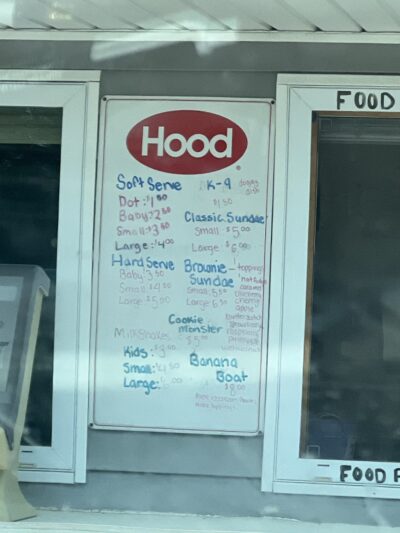 Hood
Soft Serve
Dot: $1.50
Baby: $2.50
Small: $3.50
Large: $4.00
Hard Serve
Baby: 3.50
Small $4.50
Large: $5.00
Milkshakes
Kids:
Small: $4.50
Large:
K-9
$1.50
Classic Sundae
Small: $5.00
Large $6.00
Brownie Sundae
Small: 5.50
Large 6.50
toppings
hot fudge
caramel
Cookie
monster
$5.00
Banana
Boat
$8.00
FOOD
FOOD